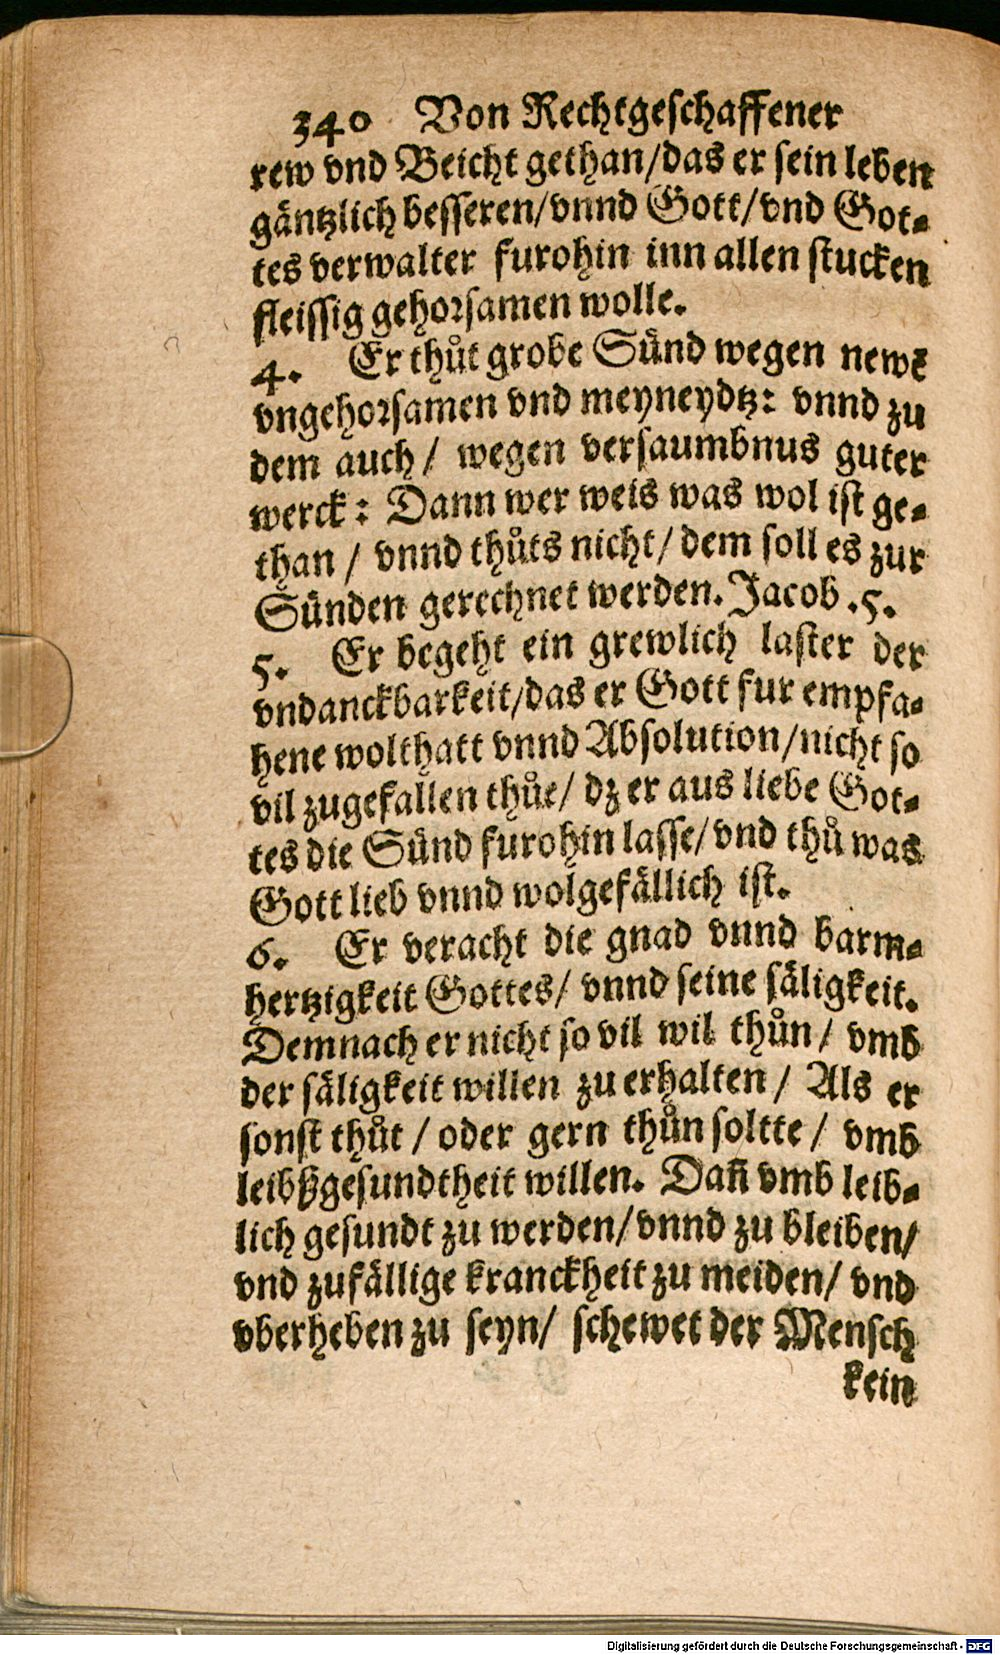 340 Von Rechtgeschaffener
rew vnd Beicht gethan/das er sein leben
gäntzlich besseren/vnnd Gott/vnd Got-
tes verwalter furohin inn allen stucken
fleissig gehorsamen wolle.
4. Er thůt grobe Sünd wegen news
vngehorsamen vnd meyneydtz: vnnd zu
dem auch/ wegen versaumbnus guter
werck: Dann wer weis was wol ist ge-
than/ vnnd thůts nicht/ dem soll es zur
Sünden gerechnet werden. Jacob .5.
5. Er begeht ein grewlich laster der
vndanckbarkeit/das er Gott fur empfa-
hene wolthatt vnnd Absolution/nicht so
vil zugefallen thůe/ dz er aus liebe Got-
tes die Sünd furohin lasse/vnd thů was
Gott lieb vnnd wolgefällich ist.
6. Er veracht die gnad vnnd barm-
hertzigkeit Gottes/ vnnd seine säligkeit.
Demnach er nicht so vil wil thůn/ vmb
der säligkeit willen zu erhalten/ Als er
sonst thůt/ oder gern thůn soltte/ vmb
leibßgesundtheit willen. Dañ vmb leib-
lich gesundt zu werden/vnnd zu bleiben/
vnd zufällige kranckheit zu meiden/ vnd
vberheben zu seyn/ schewet der Mensch
kein
Digitalisierung gefördert durch die Deutsche Forschungsgemeinschaft - DFG